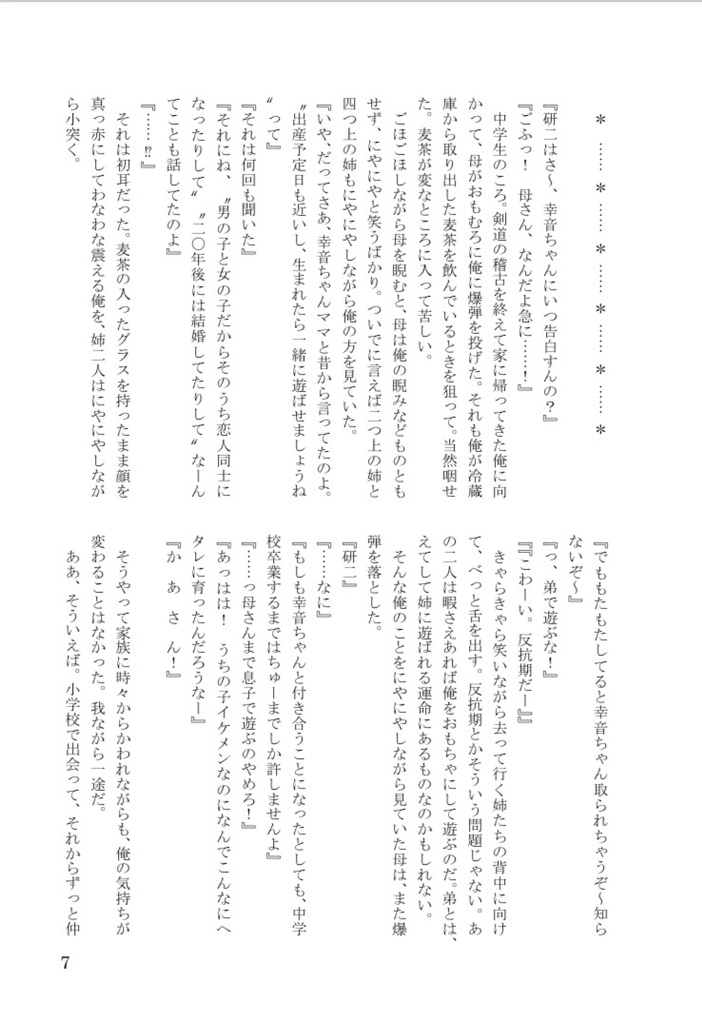 ＊ …… ＊ …… ＊ …… ＊ …… ＊ …… ＊
『研二はさ〜、幸音ちゃんにいつ告白すんの？』
『ごふっ！　母さん、なんだよ急に……！』
　中学生のころ。剣道の稽古を終えて家に帰ってきた俺に向
かって、母がおもむろに俺に爆弾を投げた。それも俺が冷蔵
庫から取り出した麦茶を飲んでいるときを狙って。当然咽せ
た。麦茶が変なところに入って苦しい。
　ごほごほしながら母を睨むと、母は俺の睨みなどものとも
せず、にやにやと笑うばかり。ついでに言えば二つ上の姉と
四つ上の姉もにやにやしながら俺の方を見ていた。
『いや、だってさあ、幸音ちゃんママと昔から言ってたのよ。
〝出産予定日も近いし、生まれたら一緒に遊ばせましょうね
〟って』
『それは何回も聞いた』
『それにね、〝男の子と女の子だからそのうち恋人同士に
なったりして〟〝二〇年後には結婚してたりして〟なーん
てことも話してたのよ』
『……⁉』
　それは初耳だった。麦茶の入ったグラスを持ったまま顔を
真っ赤にしてわなわな震える俺を、姉二人はにやにやしなが
ら小突く。
『でももたもたしてると幸音ちゃん取られちゃうぞ〜知ら
ないぞ〜』
『っ、弟で遊ぶな！』
『『こわーい。反抗期だー』』
　きゃらきゃら笑いながら去って行く姉たちの背中に向け
て、べっと舌を出す。反抗期とかそういう問題じゃない。あ
の二人は暇さえあれば俺をおもちゃにして遊ぶのだ。弟とは、
えてして姉に遊ばれる運命にあるものなのかもしれない。
　そんな俺のことをにやにやしながら見ていた母は、また爆
弾を落とした。
『研二』
『……なに』
『もしも幸音ちゃんと付き合うことになったとしても、中学
校卒業するまではちゅーまでしか許しませんよ』
『……っ母さんまで息子で遊ぶのやめろ！』
『あっはは！　うちの子イケメンなのになんでこんなにヘ
タレに育ったんだろうなー』
『か　あ　さ　ん！』
　そうやって家族に時々からかわれながらも、俺の気持ちが
変わることはなかった。我ながら一途だ。
　ああ、そういえば。小学校で出会って、それからずっと仲
7